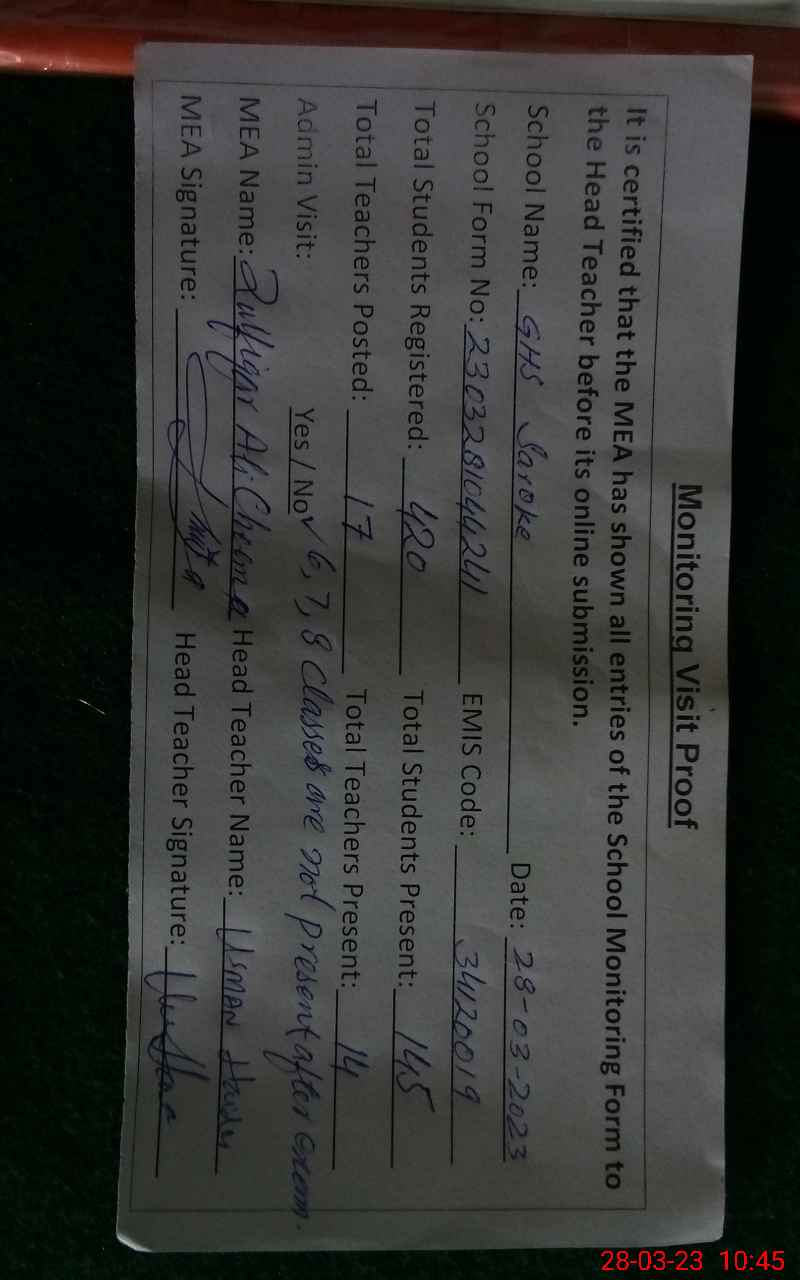 Monitoring Visit Proof
It is certified that the MEA has shown all entries of the School Monitoring Form to
the Head Teacher before its online submission.
School Name: GHS Saroke Date: 28-03-2023
School Form No: 230328104424 EMIS Code: 34120019
Total Students Registered: 420 Total Students Present: 145
Total Teachers Posted: 17 Total Teachers Present: 14
Admin Visit: Yes / No ✓ 6, 7, 8 Classes are not present after exam.
MEA Name: Zulfiqar Ali Cheema Head Teacher Name: USMAN
MEA Signature: Head Teacher Signature:
28-03-23 10:45